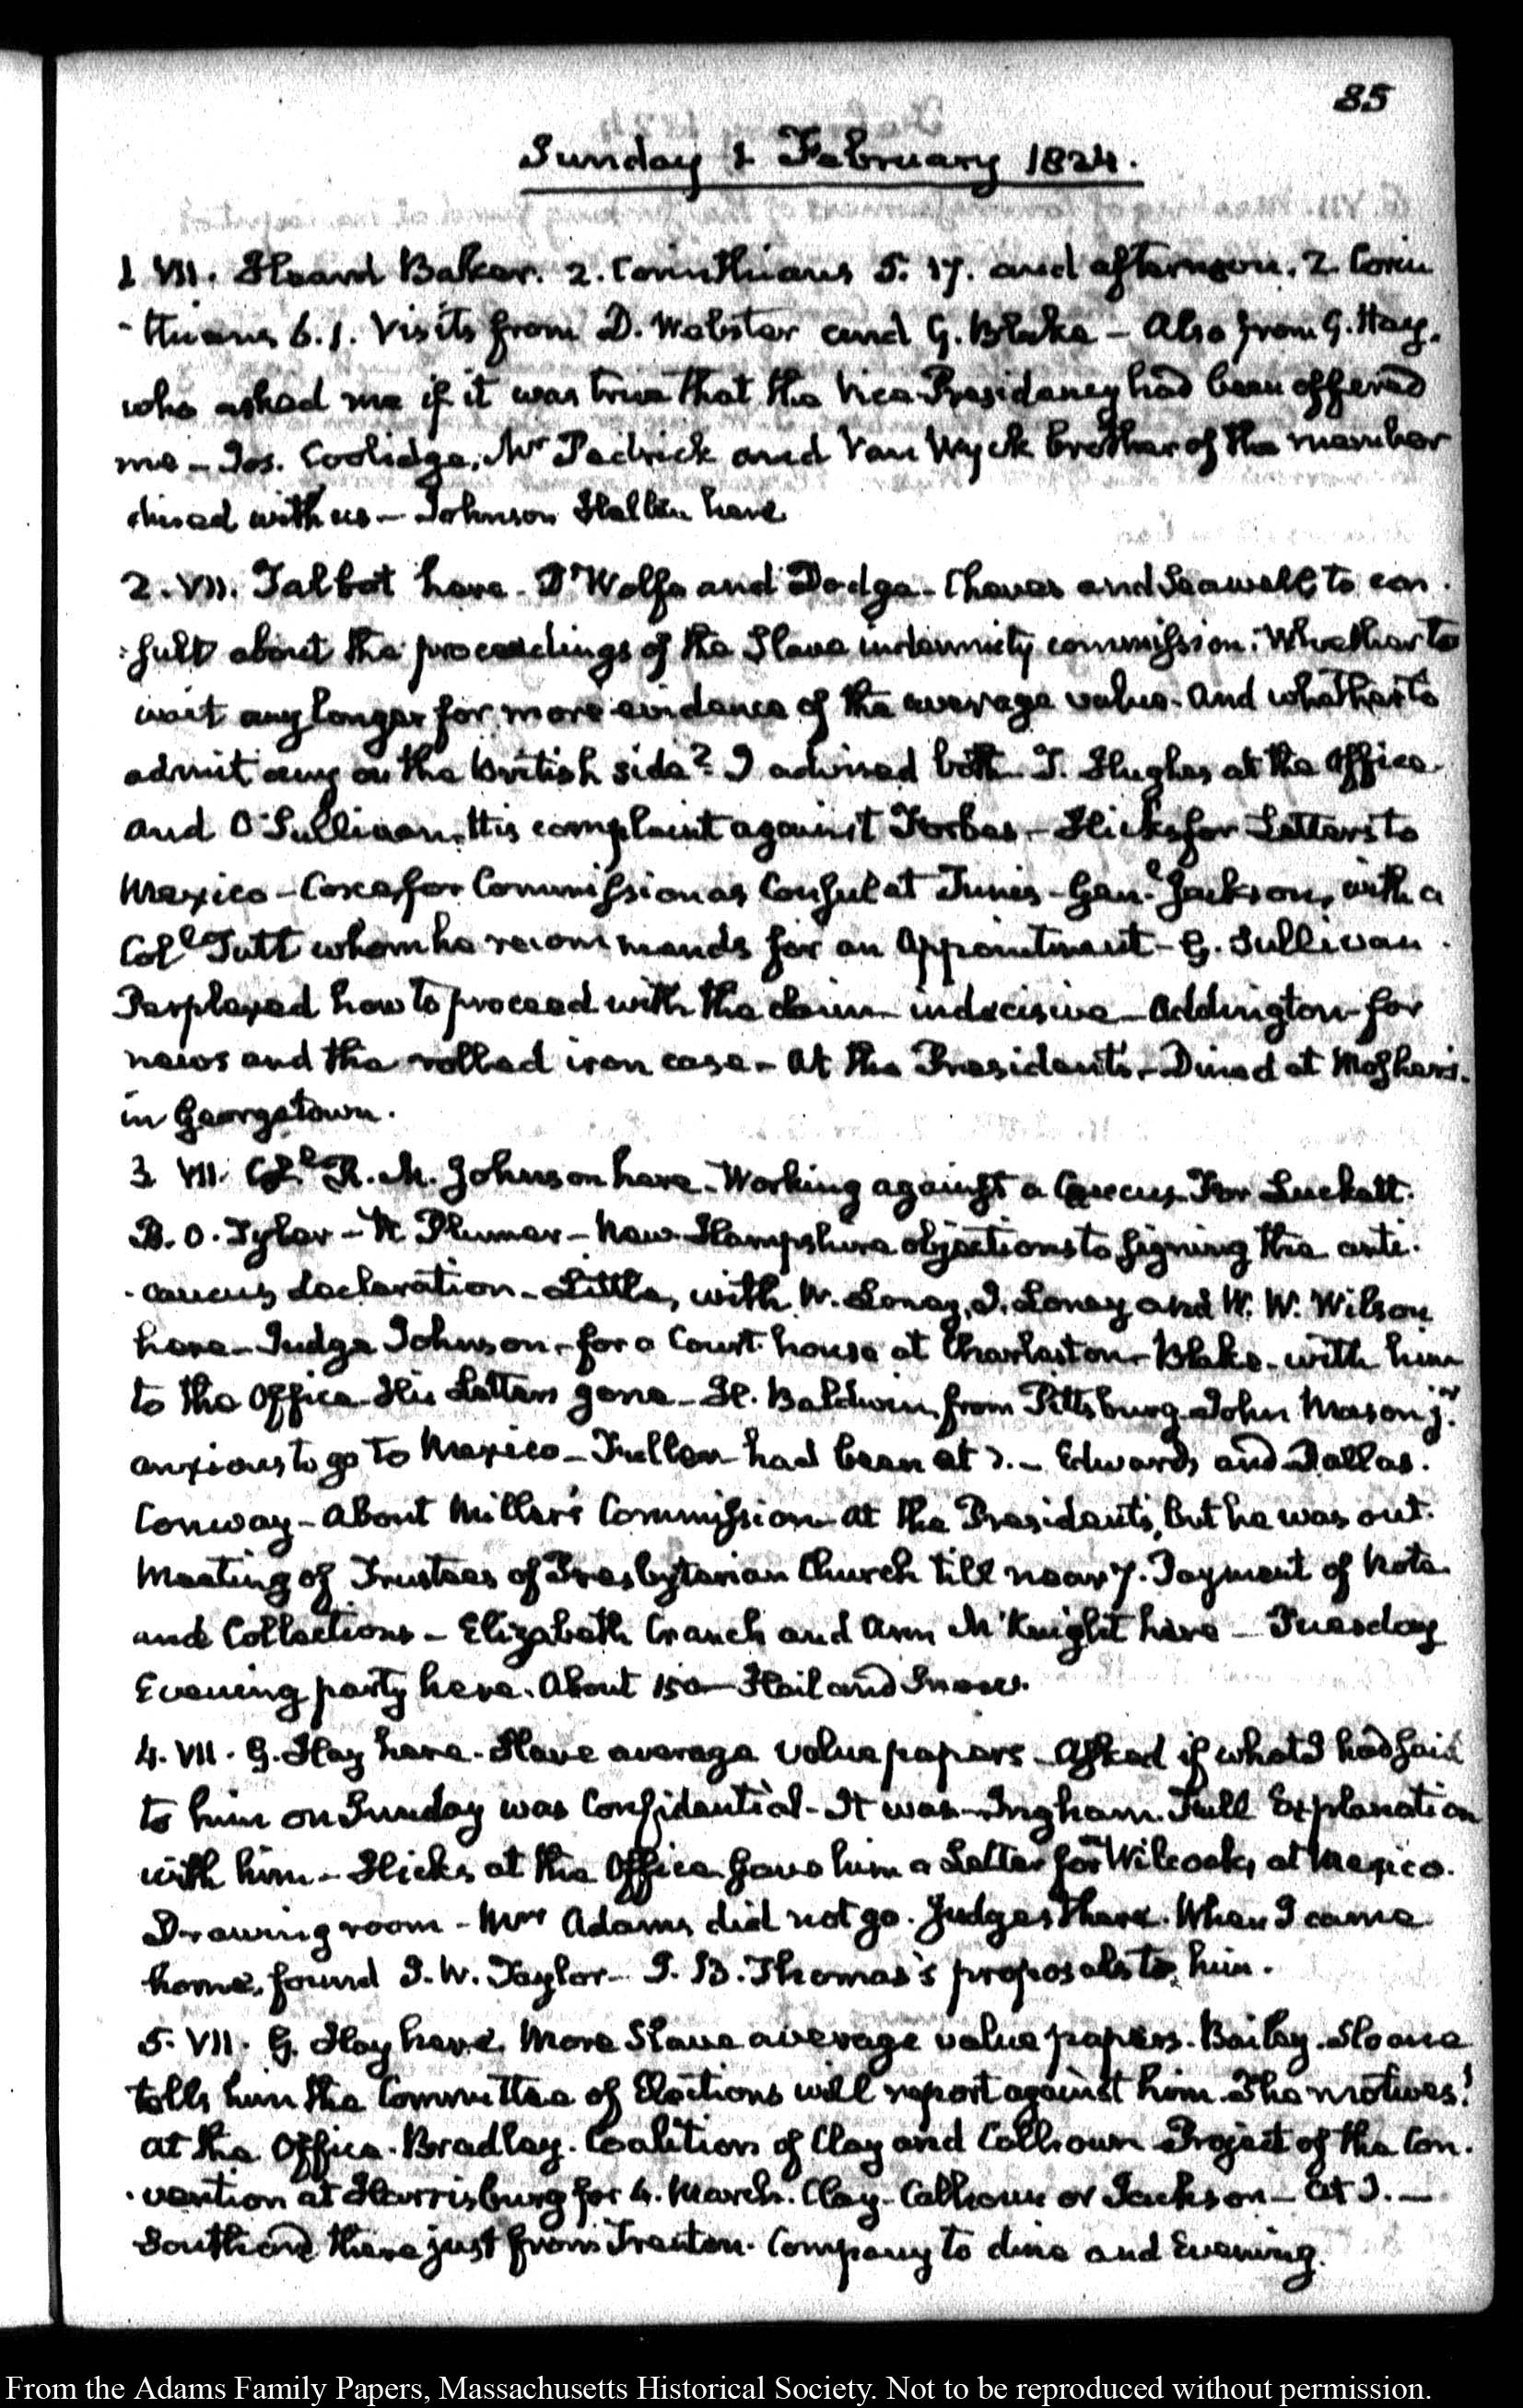 85
Sunday 1 February 1824.
1 VII. Heard Baker. 2. Corinthians 5. 17. and afternoon. 2. Corin
-thians 6. 1. Visits from D. Webster and G. Blake – Also from G. Hay.
who asked me if it was true that the Vice Presidency had been offered
me – Jos. Coolidge, Mr Pedrick and Van Wyck brother of the member
dined with us – Johnson Hellen here
2. VII. Talbot here. D'Wolfe and Dodge – Cheves and Seawell to con
-sult about the proceedings of the Slave indemnity commission. Whether to
wait any longer for more evidence of the average value. And whether to
admit any on the British side? I advised both. J. Hughes at the Office.
and O'Sullivan. His complaint against Forbes – Hicks for Letters to
Mexico – Coxe for Commission as Consul at Tunis – Genl. Jackson, with a
Coll Tutt whom he recommends for an Appointment – G. Sullivan.
Perplexed how to proceed with the claim – indecisive – Addington for
news and the rolled iron case – At the President's. – Dined at Mosher's.
in Georgetown.
3 VII. Coll. R. M. Johnson here – Working against a Caucus. For Luckett.
B. O. Tyler – W Plumer – New Hampshire objections to signing the anti.
-caucus declaration – Little, with W. Loney, J. Loney and W. W. Wilson
here – Judge Johnson – for a Court house at Charleston – Blake – with him
to the Office – His Letters gone – H. Baldwin from Pittsburg – John Mason jr.
anxious to go to Mexico – Fuller had been at D. – Edwards and Dallas.
Conway – About Miller's Commission – At the President's, but he was out.
Meeting of Trustees of Presbyterian Church till near 7. Payment of Note.
and Collections – Elizabeth Cranch and Ann McKnight here – Tuesday
Evening party here. About 150 – Hail and Snow.
4. VII. G. Hay here. Slave average value papers – Asked if what I had said
to him on Sunday was Confidential – It was – Ingham. Full Explanation
with him – Hicks at the Office. Gave him a Letter for Wilcocks, at Mexico.
Drawing room – Mrs Adams did not go. Judges there. When I came
home, found J. W. Taylor – J. B. Thomas's proposals to him.
5. VII. G. Hay here. More Slave average value papers. Bailey. Sloane
tells him the Committee of Elections will report against him. The motives!
At the Office. Bradley. Coalition of Clay and Calhoun – Project of the Con.
-vention at Harrisburg for 4. March. Clay – Calhoun or Jackson – At D. –
Southard there just from Trenton. Company to dine and Evening.
From the Adams Family Papers, Massachusetts Historical Society. Not to be reproduced without permission.